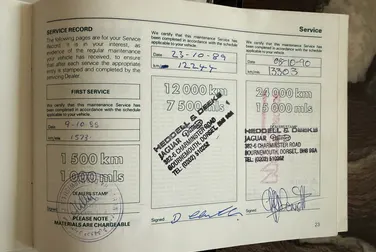 SERVICE RECORD
The following pages are for your Service
Record. It is in your interest, as
evidence of the regular maintenance
your vehicle has received, to ensure
that after each service the appropriate
entry is stamped and completed by the
servicing Dealer.
FIRST SERVICE
We certify that this maintenance Service has
been completed in accordance with the schedule
applicable to your vehicle.
Date
1 500
km
1 000 mls
DEALERS STAMP
PLEASE NOTE
MATERIALS ARE CHARGEABLE
We certify that this maintenance Service has
been completed in accordance with the schedule
applicable to your vehicle.
Date 23-10-89
12 000 km
7 500 mls
HEDDELL & DEEKS
JAGUAR
382-4 CHARMINSTER ROAD
BOURNEMOUTH, DORSET,
TEL: (0202) 510252
Signed
Service
We certify that this maintenance Service has
been completed in accordance with the schedule
applicable to your vehicle.
Date 05-10-90
13303
24 000 km
15 000 mls
HEDDELL & DEEKS
JAGUAR
382-4 CHARMINSTER ROAD
BOURNEMOUTH, DORSET, BH8 9SA
TEL: (0202) 510252
Signed
23